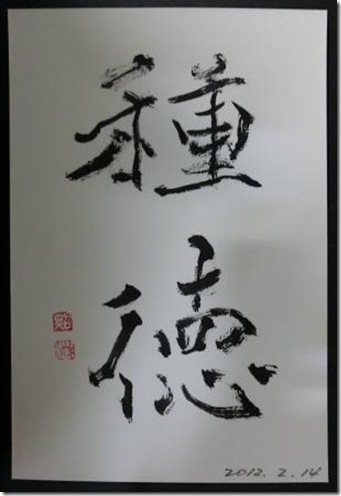 種
徳
2012.2.14